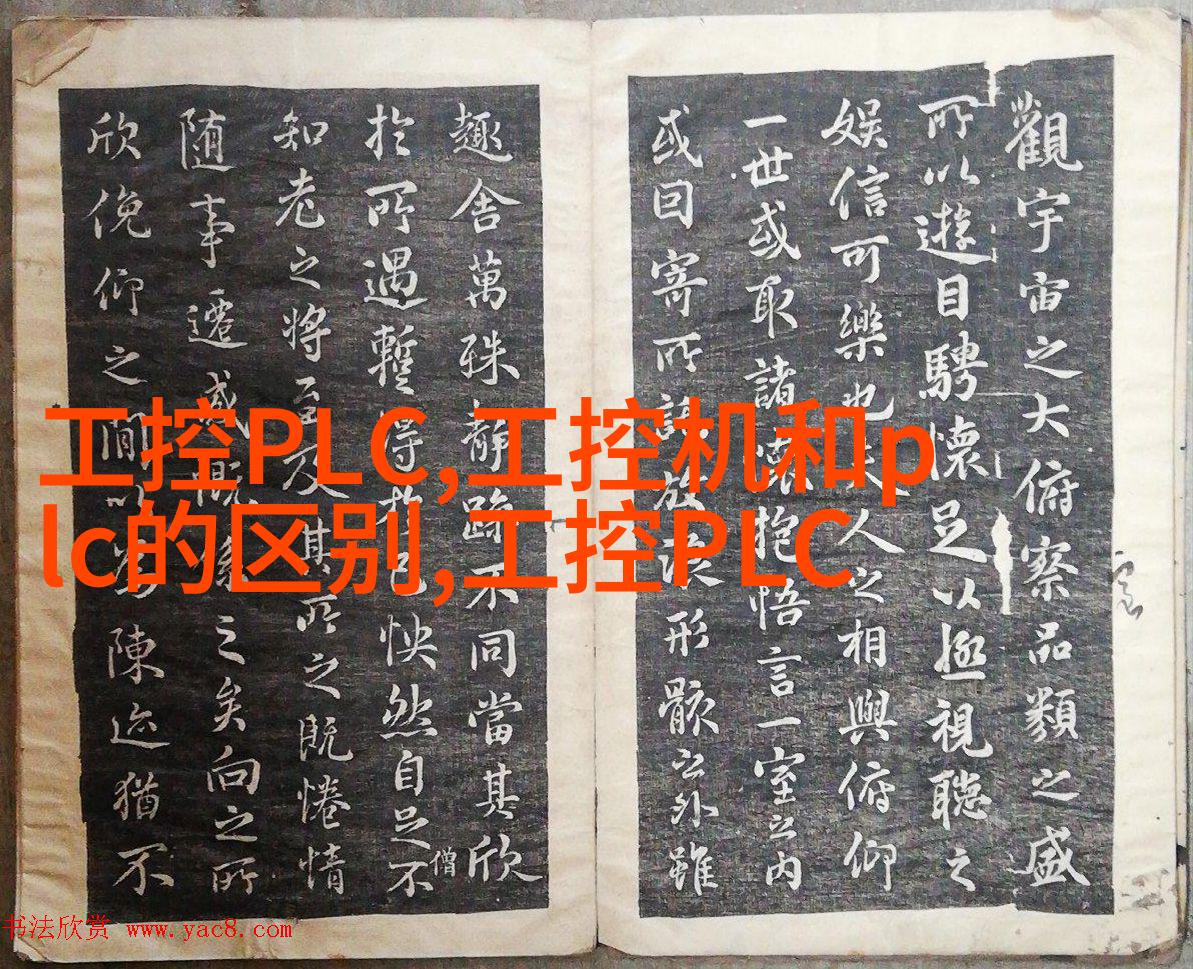 觀宇宙之大俯察品類之盛
所以遊目騁懷足以極視聽之
娛信可樂也夫人之相與俯仰
一世或取諸懷抱悟言一室之內
或因寄所託放浪形骸之外雖
趣舍萬殊靜躁不同當其欣
於所遇暫得於己怏然自足不
僧
知老之將至及其所之既惓情
隨事遷感慨係之矣向之所
欣俛仰之閒以為陳迹猶不
工控PLC,工控机和p
lc的区别,工控PLC
书法欣赏 www.yac8.com